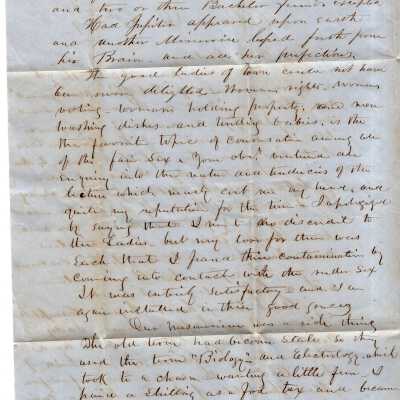 and two or three Bachelor friends excepted
Had Jupiter appeared upon earth
and another Minerva leped forth from
his Brain and all her perfections
The good ladies of Town could not have
been more delighted Womans rights, womens
voting – womom holding property, and men
washing dishes and tending babies, is the
the favorit topic of conversation among all
of the fair Sex & your obt. ventured an
enquiry into the nature and tendencies of the
lecture which nearly cost me my head, and
quite my reputation for the time I apologised
by saying that I ment no discredit to
the Ladies but my love for them was
Such that I feard their contamination by
coming into contact with the ruder Sex
It was entirely Satisfactory and I am
again installed in their good graces
Our Mesmerism was a rich thing
The old term had become Stale so they
used the term "Biology" and Electrology which
took to a charm wanting a little fun I
paid a Shilling as a fool tax and became